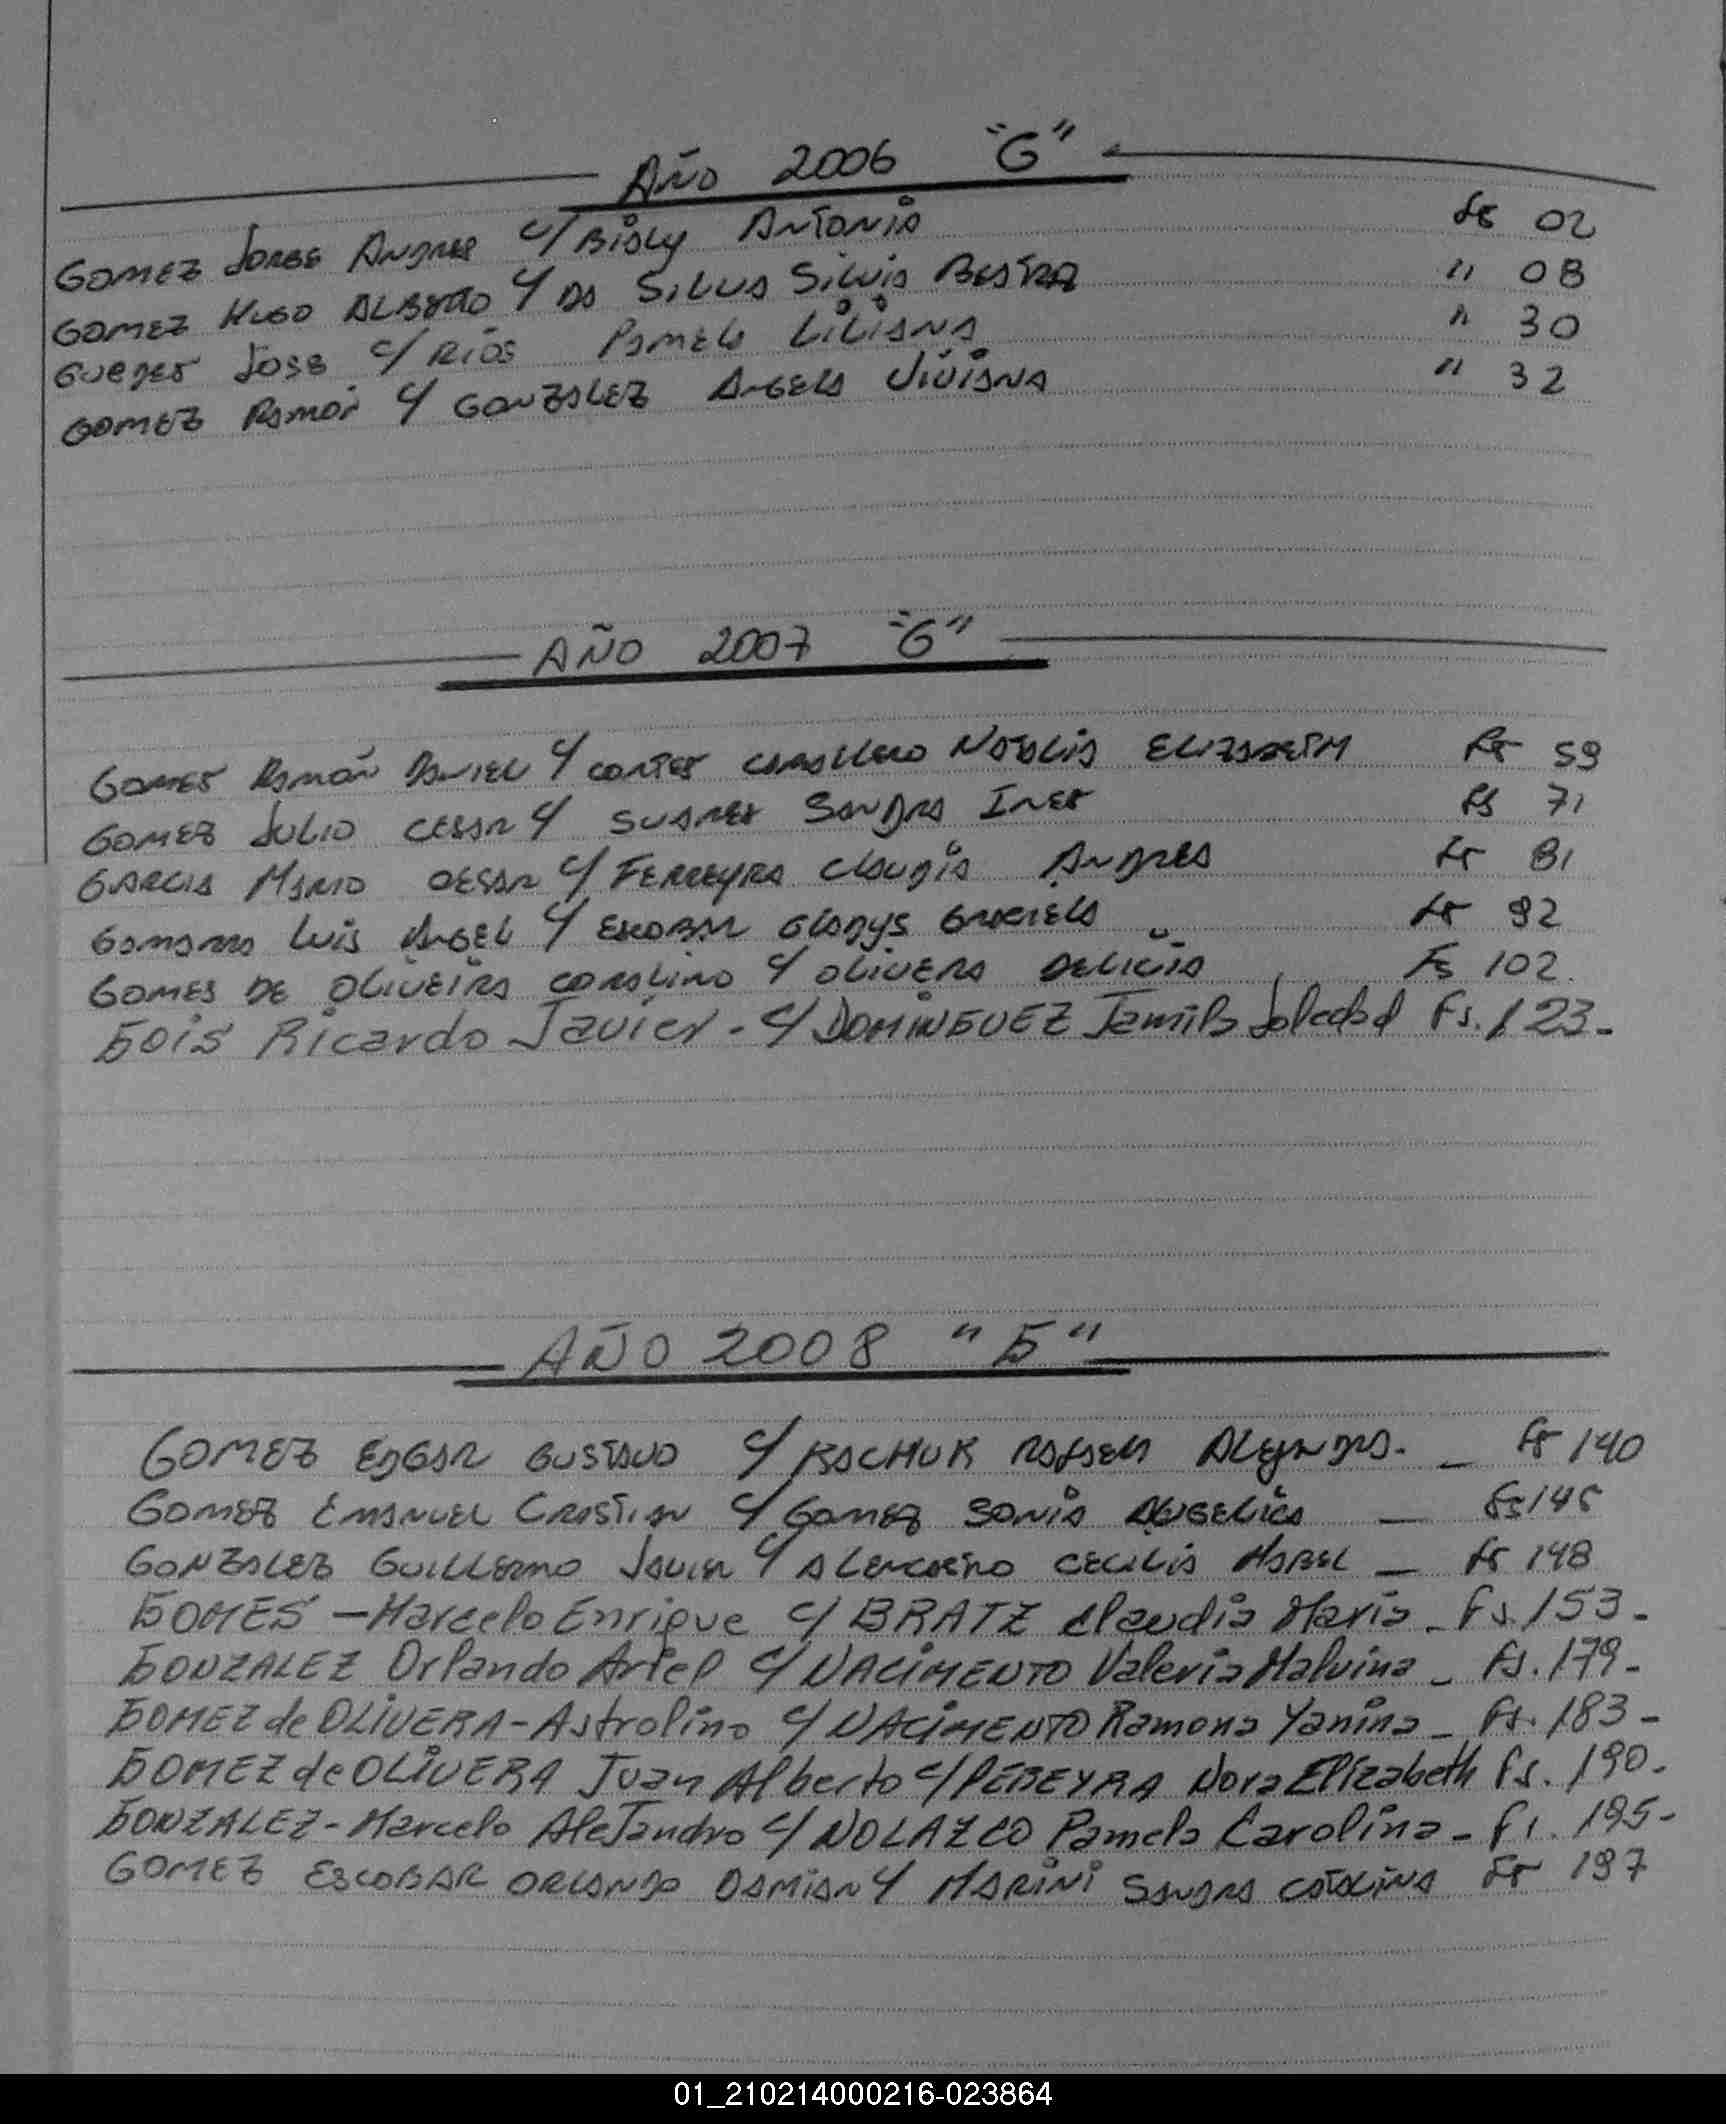 Año 2006 "G"
GOMEZ JORGE ANDRES c/ BIALY ANTONIA fs 02
GOMEZ HUGO ALBERTO c/ DA SILVA SILVIA BEATRA " 08
JOSE c/ RIOS PAMELA LILIANA " 30
GOMEZ RAMON c/ GONZALEZ ANGELA VIVIANA " 32
AÑO 2007 "G"
GOMES RAMÓN DANIEL c/ CORTES CABALLERO NATALIA ELIZABETH Fs 59
GOMEZ JULIO CESAR c/ SUAREZ SANDRA INES fs 71
GARCIA MARIO CESAR c/ FERREYRA CLAUDIA ANDREA fs 81
GAMARRA LUIS ANGEL c/ ESCOBAR GLADYS GRACIELA fs 92
GOMES DE OLIVEIRA CAROLINO c/ OLIVERA DELICIA Fs 102
GOIS Ricardo Javier - c/ DOMINGUEZ Jamila Soledad Fs. 123-
AÑO 2008 "G"
GOMEZ EDGAR GUSTAVO c/ RAFAELA ALEJANDRA. - fs 140
GOMEZ EMANUEL CRISTIAN c/ GOMEZ SONIA ANGELICA - fs 145
GONZALEZ GUILLERMO JAVIER c/ CECILIA MABEL - fs 148
GOMES - Marcelo Enrique c/ BRATZ Claudia Maria - fs. 153-
GONZALEZ Orlando Ariel c/ NACIMENTO Valeria Malvina - fs. 179-
GOMEZ de OLIVERA - Astrolino c/ NACIMENTO Ramona Yanina - fs. 183-
GOMEZ de OLIVERA Juan Alberto c/ PEREYRA Nora Elizabeth fs. 190-
GONZALEZ - Marcelo AleJandro c/ NOLAZCO Pamela Carolina - fs. 195-
GOMEZ ESCOBAR ORLANDO DAMIAN c/ MARINI SANDRA CATALINA fs 197
01_210214000216-023864